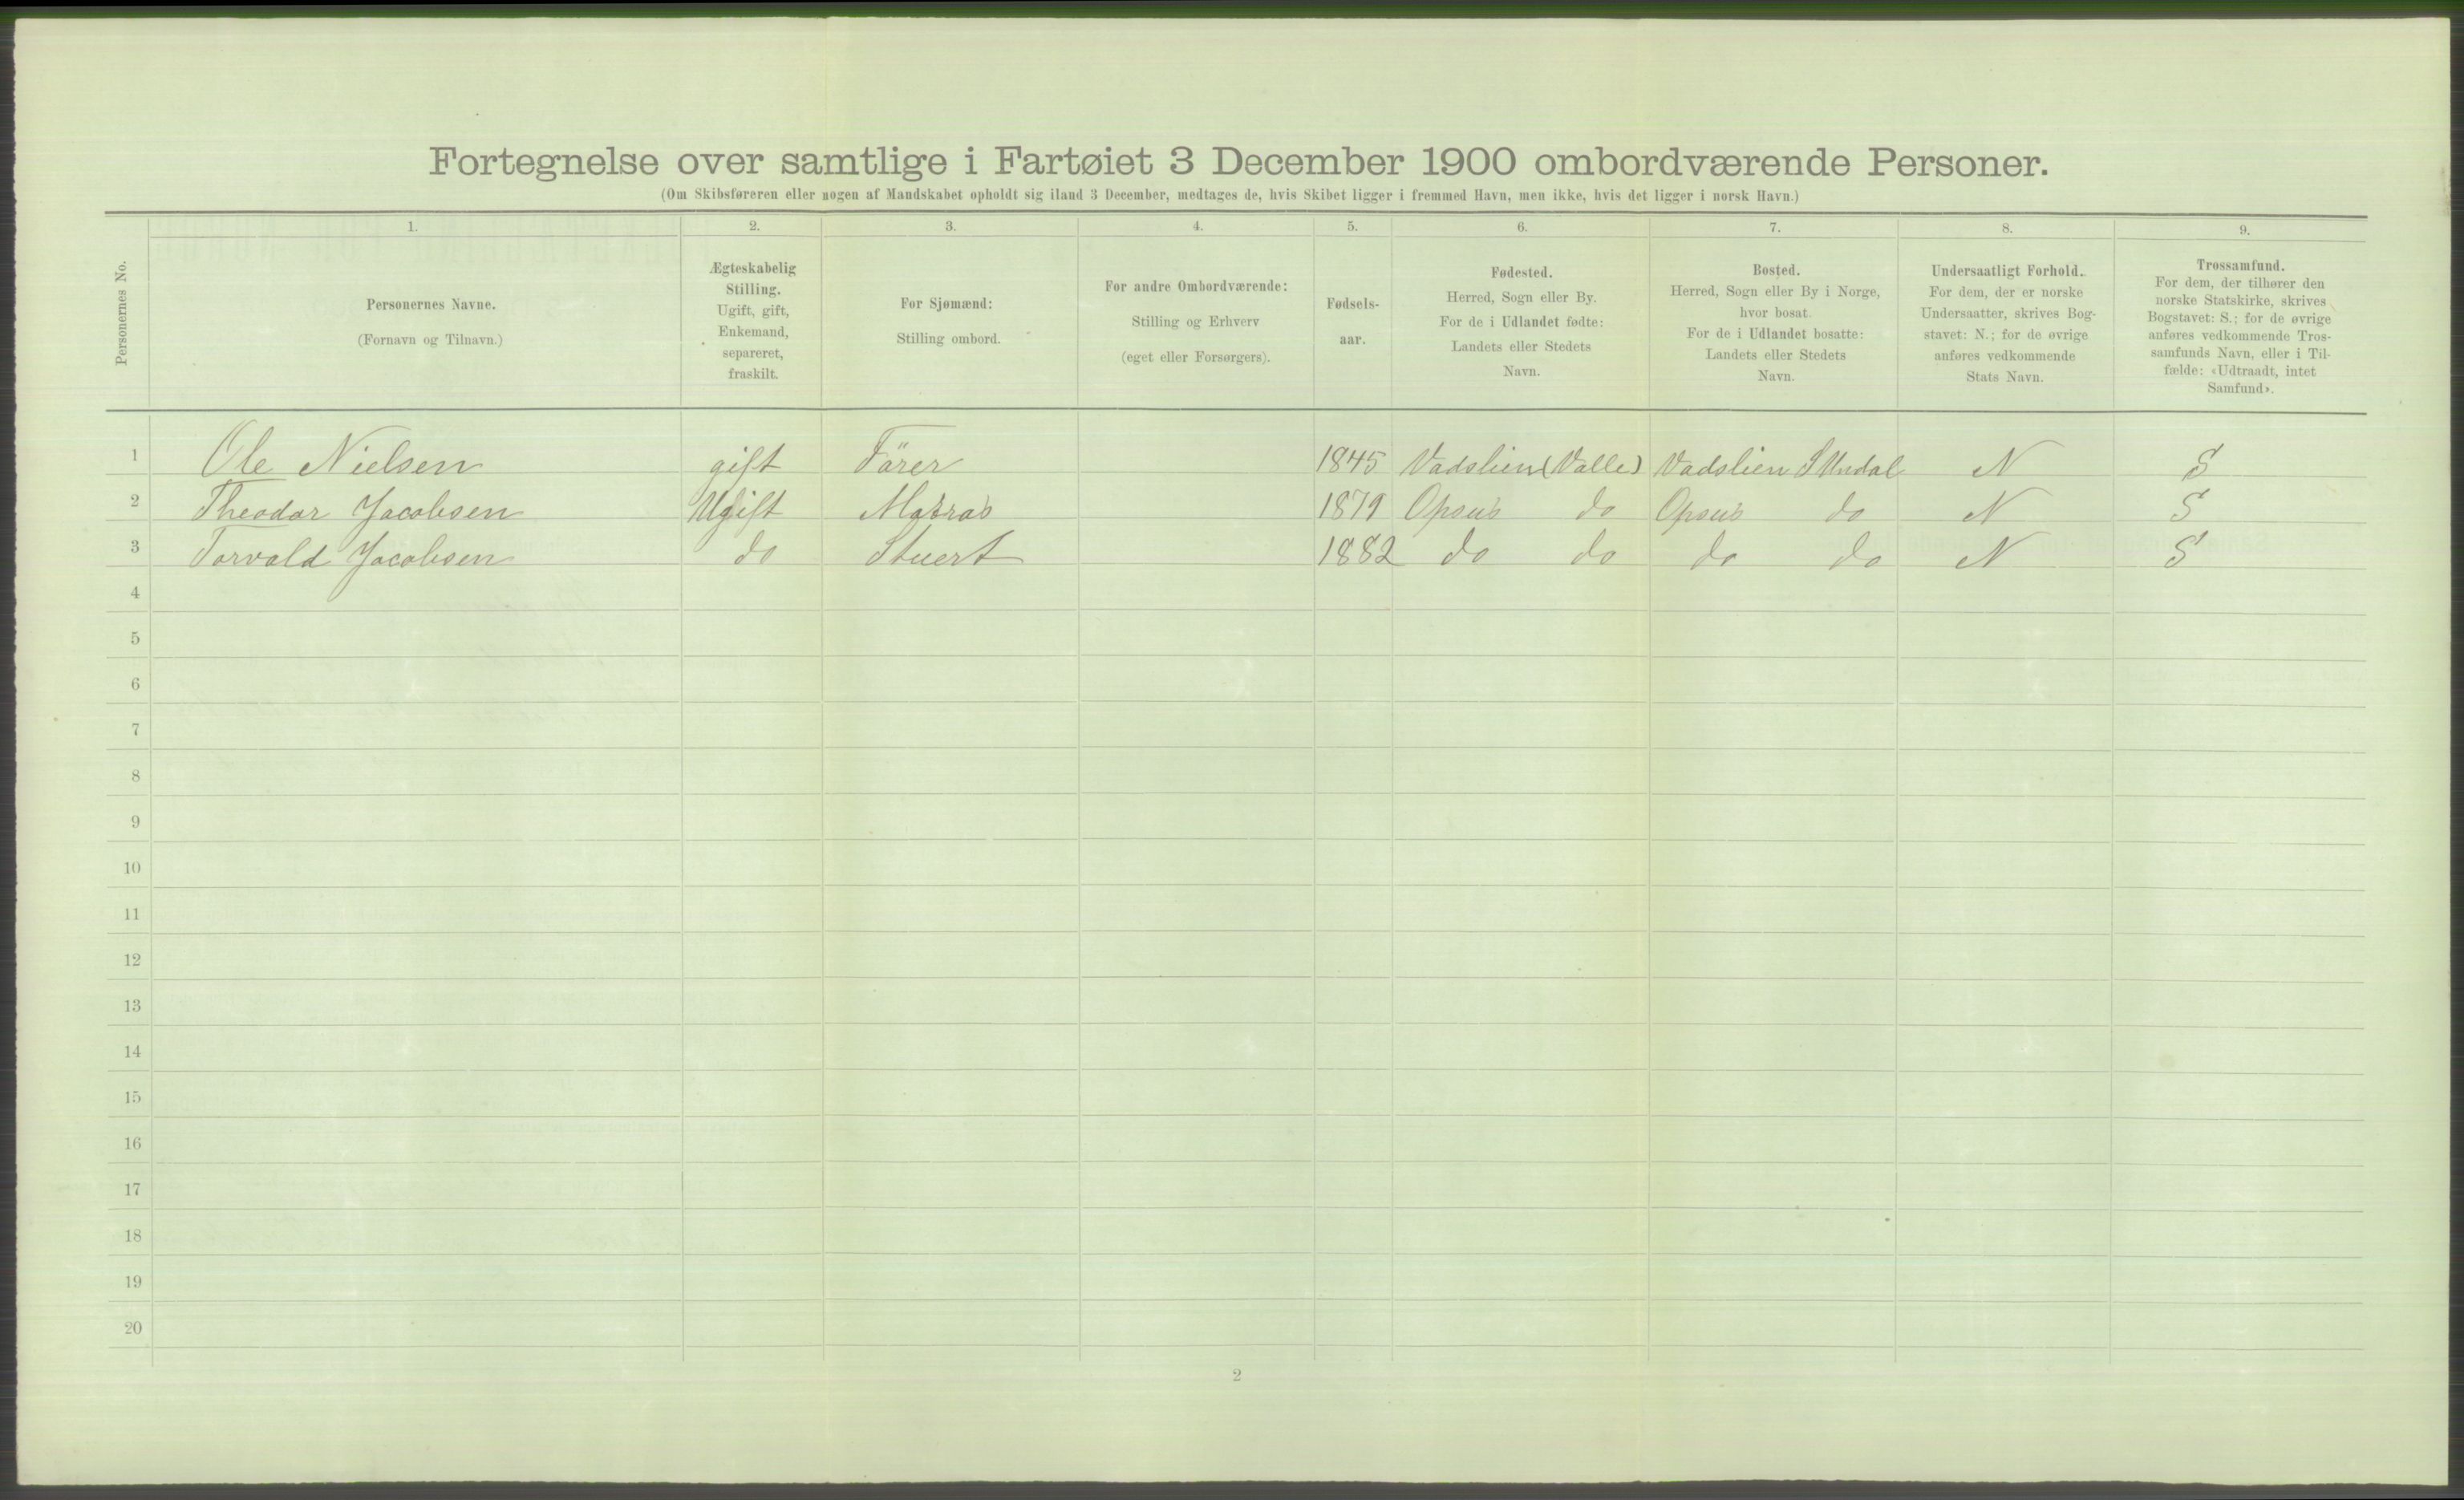 Fortegnelse over samtlige i Fartøiet 3 December 1900 ombordværende Personer.
(Om Skibsføreren eller nogen af Mandskabet opholdt sig iland 3 December, medtages de, hvis Skibet ligger i fremmed Havn, men ikke, hvis det ligger i norsk Havn.)
Personernes No.
1.
Personernes Navne.
(Fornavn og Tilnavn.)
2.
Ægteskabelig
Stilling.
Ugift, gift,
Enkemand,
separeret,
fraskilt.
3.
For Sjømænd:
Stilling ombord.
4.
For andre Ombordværende:
Stilling og Erhverv
(eget eller Forsørgers).
5.
Fødsels-
aar.
6.
Fødested.
Herred, Sogn eller By.
For de i Udlandet fødte:
Landets eller Stedets
Navn.
7.
Bosted.
Herred, Sogn eller By i Norge,
hvor bosat.
For de i Udlandet bosatte:
Landets eller Stedets
Navn.
8.
Undersaatligt Forhold.
For dem, der er norske
Undersaatter, skrives Bog-
stavet: N.; for de øvrige
anføres vedkommende
Stats Navn.
9.
Trossamfund.
For dem, der tilhører den
norske Statskirke, skrives
Bogstavet: S.; for de øvrige
anføres vedkommende Tros-
samfunds Navn, eller i Til-
fælde: «Udtraadt, intet
Samfund».
1 Ole Nielsen gift Förer 1845 Vadslien (Valle) Vadslien S Undal N S
2 Theodor Jacobsen Ugift Matros 1879 Opsus do Opsus do N S
3 Torvald Jacobsen do Stuert 1882 do do do do N S
4
5
6
7
8
9
10
11
12
13
14
15
16
17
18
19
20
2